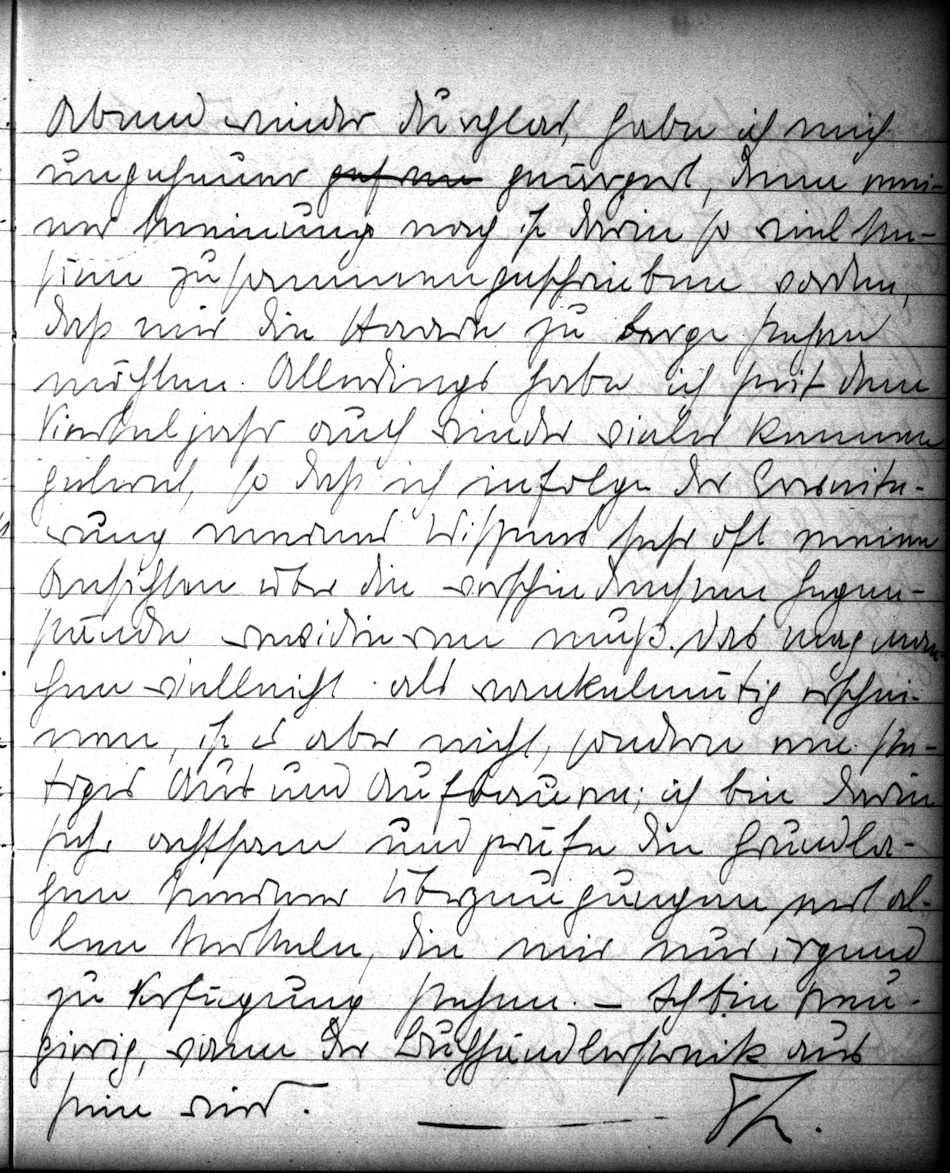 Abend wieder durchlas, habe ich mich
ungeheuer geärgert, denn mei-
ner Meinung nach ist darin so viel Un-
sinn zusammengeschrieben worden,
daß mir die Haare zu berge stehen
möchten. Allerdings habe ich seit dem
Vierteljahr auch wieder vieles kennen
gelernt, so daß ich infolge der Erweite-
rung meines Wissens sehr oft meine
Ansichten über die verschiedensten Gegen-
stände revidieren muß. Das mag man-
chen vielleicht als wankelmütig erschei-
nen, ist es aber nicht, sondern ein ste-
tiges Aus und Aufbauen; ich bin darin
sehr achtsam und prüfe die Grundla-
gen meiner Überzeugungen mit al-
len Mitteln, die mir nur irgend
zu Verfügung stehen. – Ich bin neu-
gierig, wann der Buchhändlerstreik aus
sein wird.